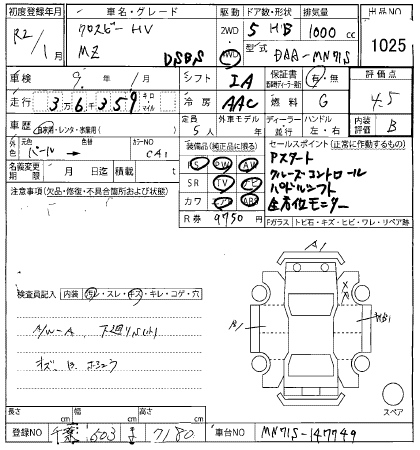 初度登録年月 車名・グレード 駆動 ドア数・形状 排気量 出品NO
R2/1月 クロスビー HV 2WD 5 HB 1000 cc 1025
MZ DSBS 4WD 型式 DAA-MN71S
車検 9年 1月 シフト IA 保証書 有・無 評価点
走行 3万6千359 キロ マイル 冷房 AAC 燃料 G 4.5
車歴 自家用・レンタ・ 定員 5人 外車モデル ディーラー 並行 ハンドル 左・右 内装評価 B
外色 元色 パール 色替 カラーNO CA1
装備品(純正品に限る) セールスポイント(正常に作動するもの)
名義変更期限 月 日迄 積載 t
PS PW AW Pスタート
SR TV ナビ クルーズコントロール
カワ エアB ABS パドルシフト
R券 9750 円 全方位モニター
注意事項(欠品・修復・不具合箇所および状態)
Fガラス トビ石・キズ・ヒビ・ワレ・リペア跡
A1
検査員記入 内装 汚レ・スレ・キズ・キレ・コゲ・穴
下廻りS
スペア
長さ cm 幅 cm 高さ cm
登録NO 千葉 503 ま 7180 車台NO MN71S-147749